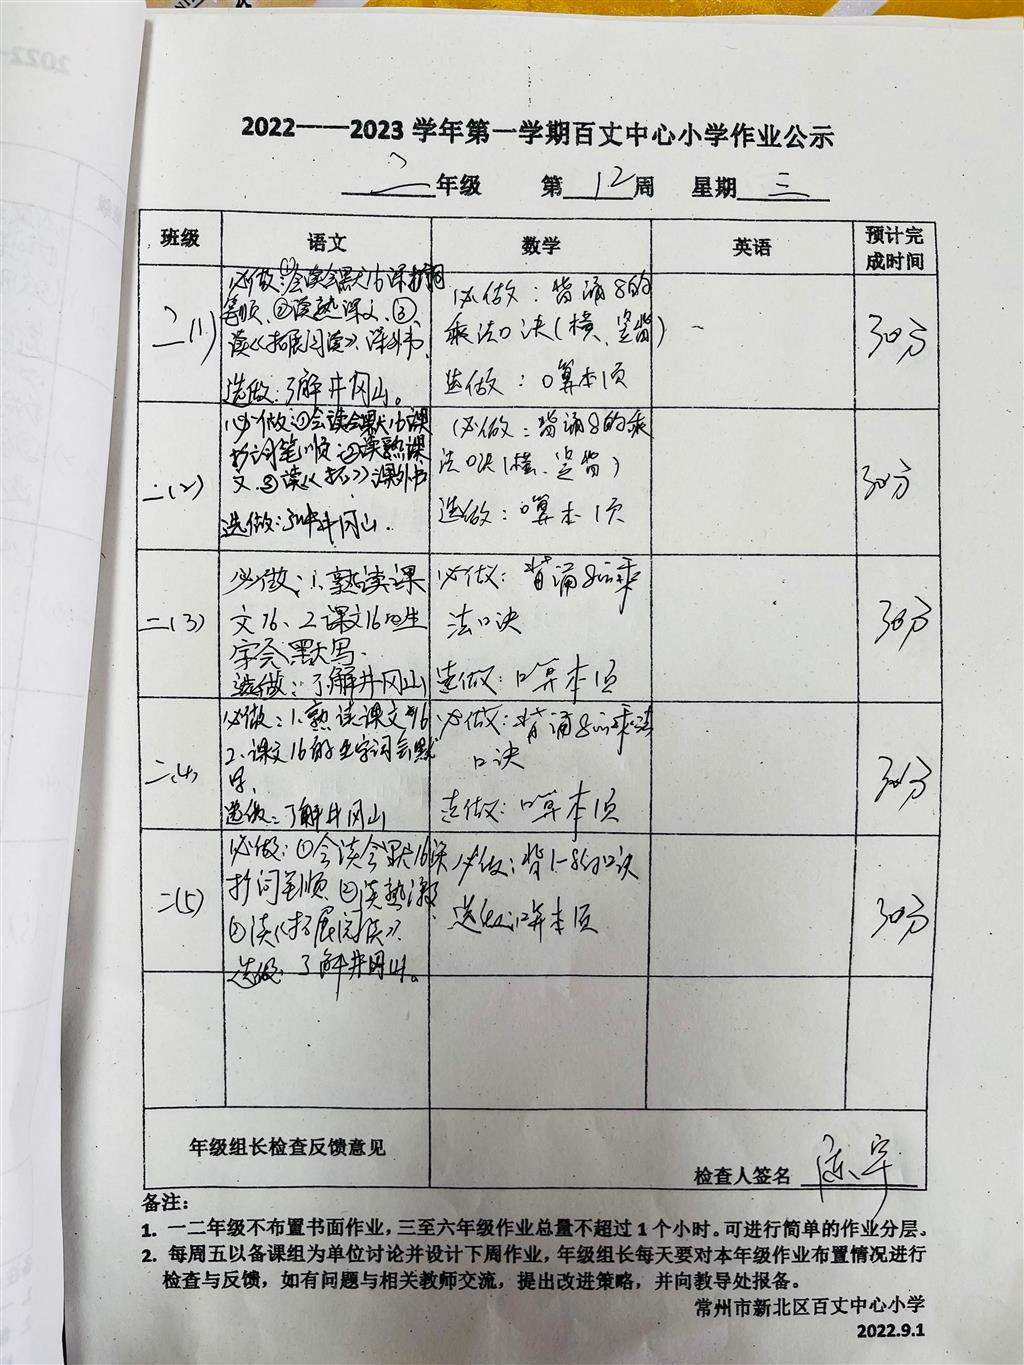 2022——2023 学年第一学期百丈中心小学作业公示
二年级 第12周 星期三
班级 语文 数学 英语 预计完成时间
二(1)
必做:①会读会默16课抄词
笔顺、②读熟课文、③
读《拓展阅读》、课外书、
选做:了解井冈山。
必做:背诵8的
乘法口诀(横、竖背)
选做:口算本1页
30分
二(2)
必做:①会读会默16课
抄词笔顺.②读熟课
文.③读《拓》课外书
选做:了解井冈山.
必做:背诵8的乘
法口诀(横、竖背)
选做:口算本1页
30分
二(3)
必做:1.熟读课
文16、2.课文16的生
字会默写.
选做:了解井冈山
必做:背诵8的乘
法口诀
选做:口算本1页
30分
二(4)
必做:1.熟读课文16
2.课文16的生字词会默
写.
选做:了解井冈山
必做:背诵8的乘法
口诀
选做:口算本1页
30分
二(5)
必做:①会读会默16课
抄词笔顺、②读熟课文
③读《拓展阅读》.
选做:了解井冈山。
必做:背1-8的口诀
选做:口算本1页
30分
年级组长检查反馈意见
检查人签名 陈宇
备注:
1. 一二年级不布置书面作业,三至六年级作业总量不超过1个小时。可进行简单的作业分层。
2. 每周五以备课组为单位讨论并设计下周作业,年级组长每天要对本年级作业布置情况进行
检查与反馈,如有问题与相关教师交流,提出改进策略,并向教导处报备。
常州市新北区百丈中心小学
2022.9.1